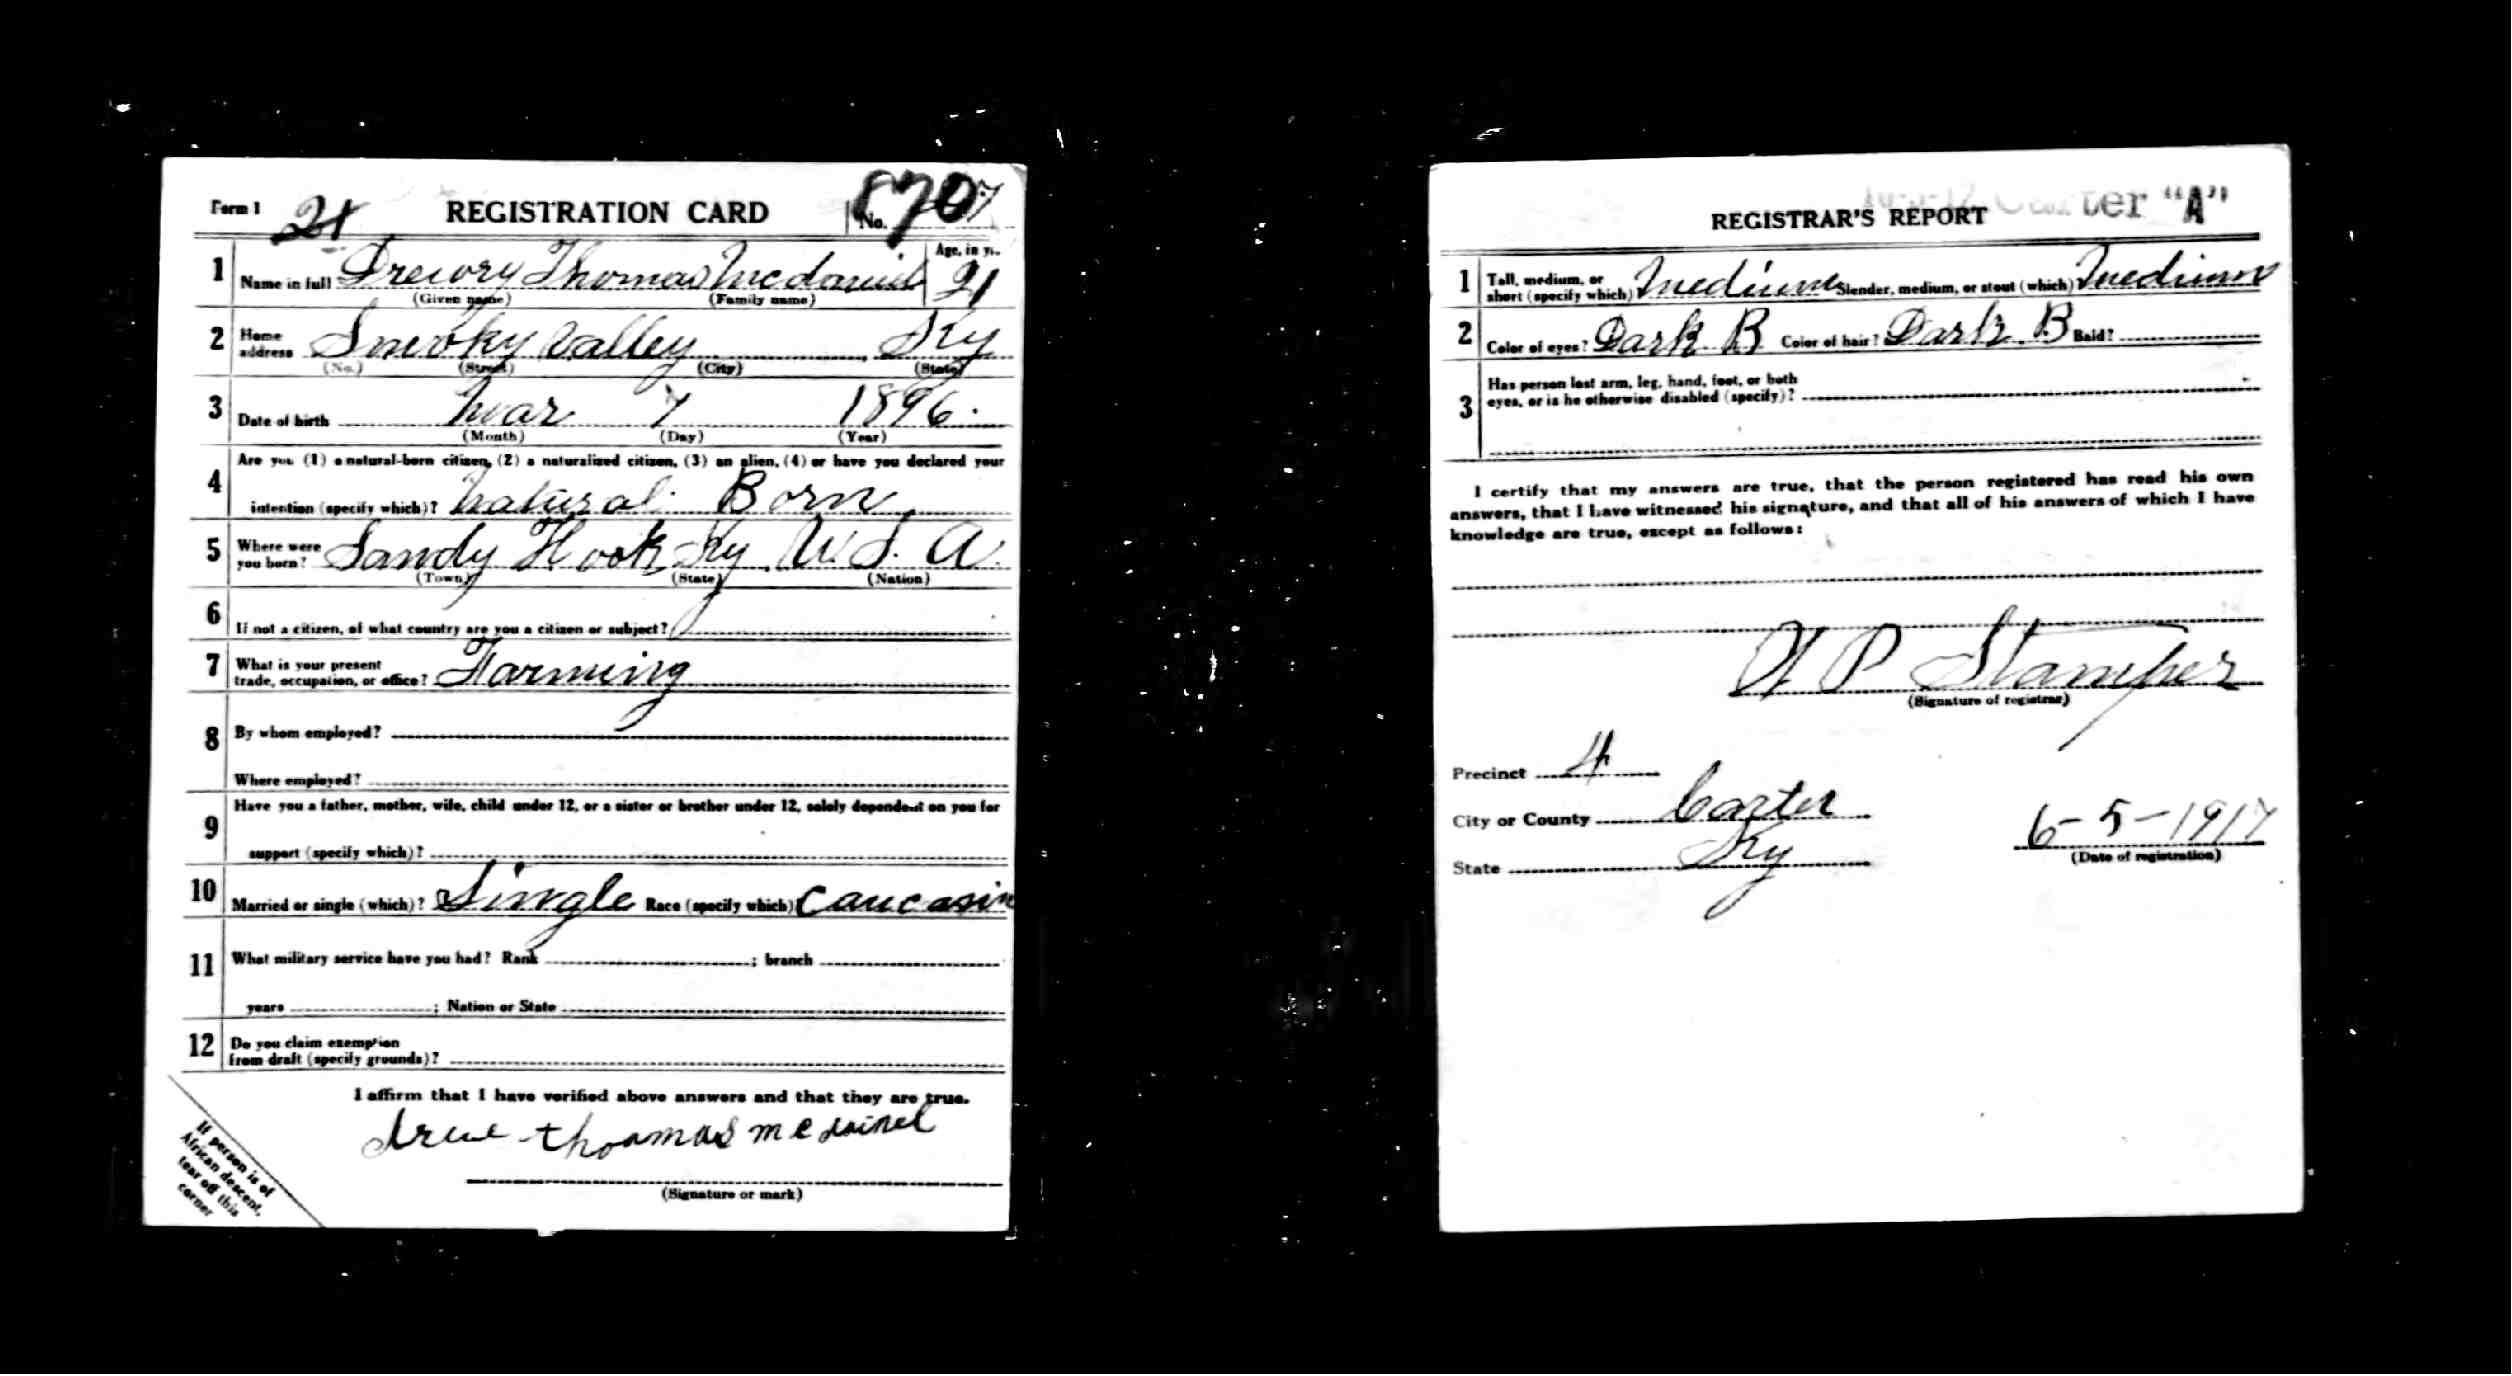 Form 1 21 REGISTRATION CARD No. 870
1 Name in full Drewry Thomas Mcdaniel Age, in yrs. 21
(Given name) (Family name)
2 Home address Smoky Valley Ky
(No.) (Street) (City) (State)
3 Date of birth Mar 7 1896.
(Month) (Day) (Year)
4 Are you (1) a natural-born citizen, (2) a naturalized citizen, (3) an alien, (4) or have you declared your
intention (specify which)? Natural Born
5 Where were you born? Sandy Hook Ky U. S. A.
(Town) (State) (Nation)
6 If not a citizen, of what country are you a citizen or subject?
7 What is your present trade, occupation, or office? Farming
8 By whom employed?
Where employed?
9 Have you a father, mother, wife, child under 12, or a sister or brother under 12, solely dependent on you for
support (specify which)?
10 Married or single (which)? Single Race (specify which) Caucasin
11 What military service have you had? Rank ; branch
years ; Nation or State
12 Do you claim exemption
from draft (specify grounds)?
I affirm that I have verified above answers and that they are true.
Drue thoamas mcdainel
(Signature or mark)
If person is of
African descent,
tear off this
corner
Carter "A"
REGISTRAR'S REPORT
1 Tall, medium, or short (specify which) Medium Slender, medium, or stout (which) Medium
2 Color of eyes? Dark B Color of hair? Dark B Bald?
3 Has person lost arm, leg, hand, foot, or both
eyes, or is he otherwise disabled (specify)?
I certify that my answers are true, that the person registered has read his own
answers, that I have witnessed his signature, and that all of his answers of which I have
knowledge are true, except as follows:
P Stamper
(Signature of registrar)
Precinct 4
City or County Carter
State Ky
6-5-1917
(Date of registration)